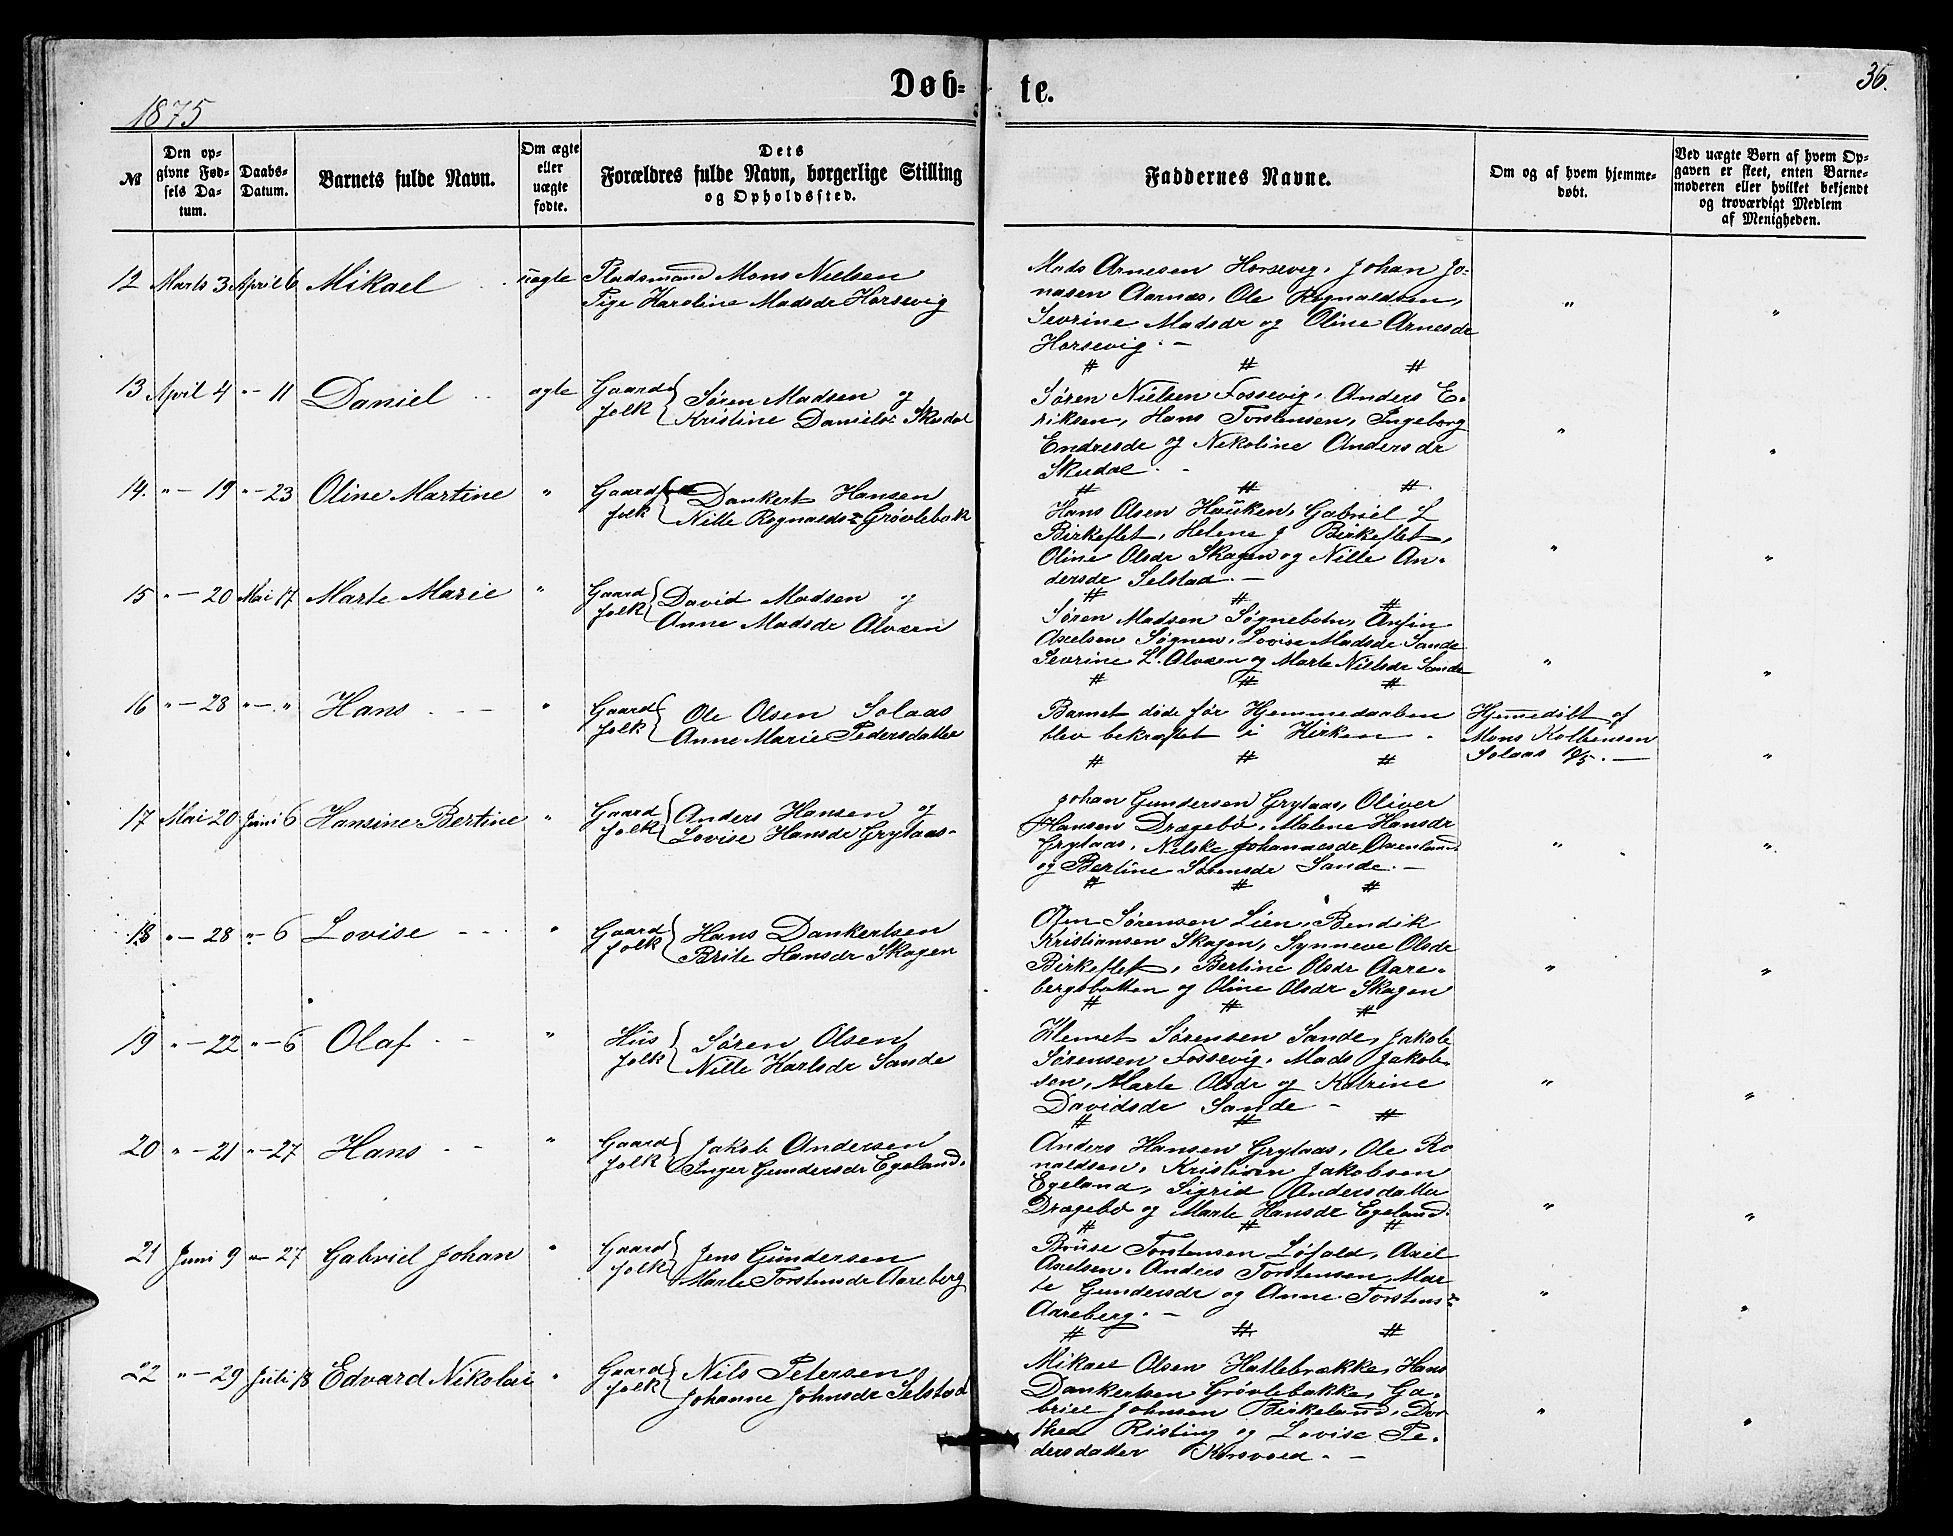 Døb= te.
36.
1875
№
Den op-
givne Fød-
sels Da-
tum.
Daabs-
Datum.
Barnets fulde Navn.
Om ægte
eller
uægte
fødte.
Dets
Forældres fulde Navn, borgerlige Stilling
og Opholdssted.
Faddernes Navne.
Om og af hvem hjemme-
døbt.
Ved uægte Børn af hvem Op-
gaven er skeet, enten Barne-
moderen eller hvilket bekjendt
og troværdigt Medlem
af Menigheden.
12 Marts 3 April 6 Mikael uægte Pladsmand Mons Nielsen
Pige Karoline Madsdr Horsevig
Mads Arnesen Horsevig, Johan Jo-
nasen Aarnæs, Ole Rognaldsen,
Sevrine Madsdr og Oline Arnesdr
Horsevig. -
" "
# # #
13 April 4 " - 11 Daniel ægte Gaard
folk Søren Madsen og
Kristine Danielsr Skudal
Søren Nielsen Fossevig, Anders E-
riksen, Hans Torstensen, Ingeborg
Endresdr og Nikoline Andersdr
Skudal.
" "
# # #
14. " - 19 " - 23 Oline Martine " Gaard
folk Dankert Hansen
Nille Rognaldsr Grøvlebak
Hans Olsen Hauken, Gabriel L
Birkeflet, Helene J Birkeflet,
Oline Olsdr Skagen og Nille An-
dersdr Selstad. -
" "
# # #
15 " - 20 Mai 17 Marte Marie " Gaard
folk David Madsen og
Anne Madsdr Alvæen
Søren Madsen Søgnebotn, Anfin
Axelsen Søgnen, Lovise Madsdr Sande
Sevrine L. Alvæen og Marte Nielsdr Sande
" "
# # #
16 " - 28 " - " Hans " Gaard
folk Ole Olsen Solaas
Anne Marie Pedersdatter
Barnet døde før Hjemmedaaben
blev bekræftet i Kirken.
Hjemmedöbt af
Mons Kolbensen
Solaas 10/5. -
"
# # #
17 Mai 20 Juni 6 Hansine Bertine " Gaard
folk Anders Hansen og
Lovise Hansdr Grytaas
Johan Gundersen Grytaas, Oliver
Hansen Drægebø, Malene Hansdr
Grytaas, Nilske Johannesdr Oxenland
og Bertine Sørensdr Sande. -
" "
# # #
18 " - 28 " - 6 Lovise " Gaard
folk Hans Dankertsen
Brite Hansdr Skagen
Sørensen Lien, Bendik
Kristiansen Skagen, Synneve Olsdr
Birkeflet, Bertine Olsdr Aare-
bergsbotten og Oline Olsdr Skagen
" "
# # #
19 " - 22 " - 6 Olaf " Hus
folk Søren Olsen
Nille Karlsdr Sande
Klemet Sørensen Sande, Jakob
Sørensen Fossevig, Mads Jakob-
sen, Marte Olsdr og Katrine
Davidsdr Sande -
" "
# # #
20 " - 21 " - 27 Hans " Gaard
folk Jakob Andersen
Inger Gundersdr Egeland.
Anders Hansen Grytaas, Ole Ro
naldsen, Kristian Jakobsen
Egeland, Sigrid Andersdatter
Drægebø og Marte Hansdr Egeland.
" "
# # #
21 Juni 9 " - 27 Gabriel Johan " Gaard
folk Jens Gundersen
Marte Torstensdr Aareberg
Bruse Torstensen Løfald, Axel
Axelsen, Anders Torstensen, Mar
te Gundersdr og Anne Torstensr
Aareberg. -
" "
# # #
22 " - 29 Juli 18 Edvard Nikolai " Gaard
folk Nils Petersen
Johanne Johnsdr Selstad
Mikael Olsen Hatlebrække, Hans
Dankertsen Grøvlebakke, Ga-
briel Johnsen Birkeland, Dor
thea Risting og Lovise Pe-
dersdatter Korsvold. -
" "